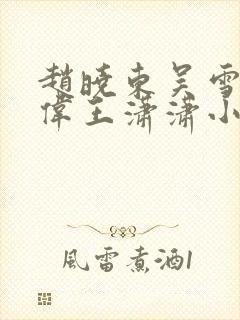 趙曉東吴雪
偉王瀟瀟小
風雷煮酒1